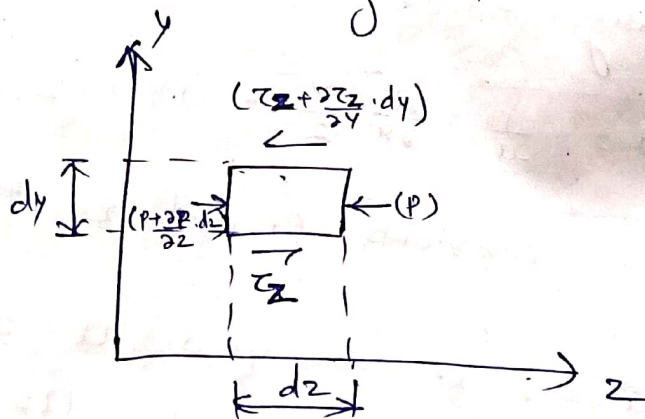 y
(τz+∂τz/∂y·dy)
dy
(P+∂P/∂z·dz)
(P)
τz
z
dz